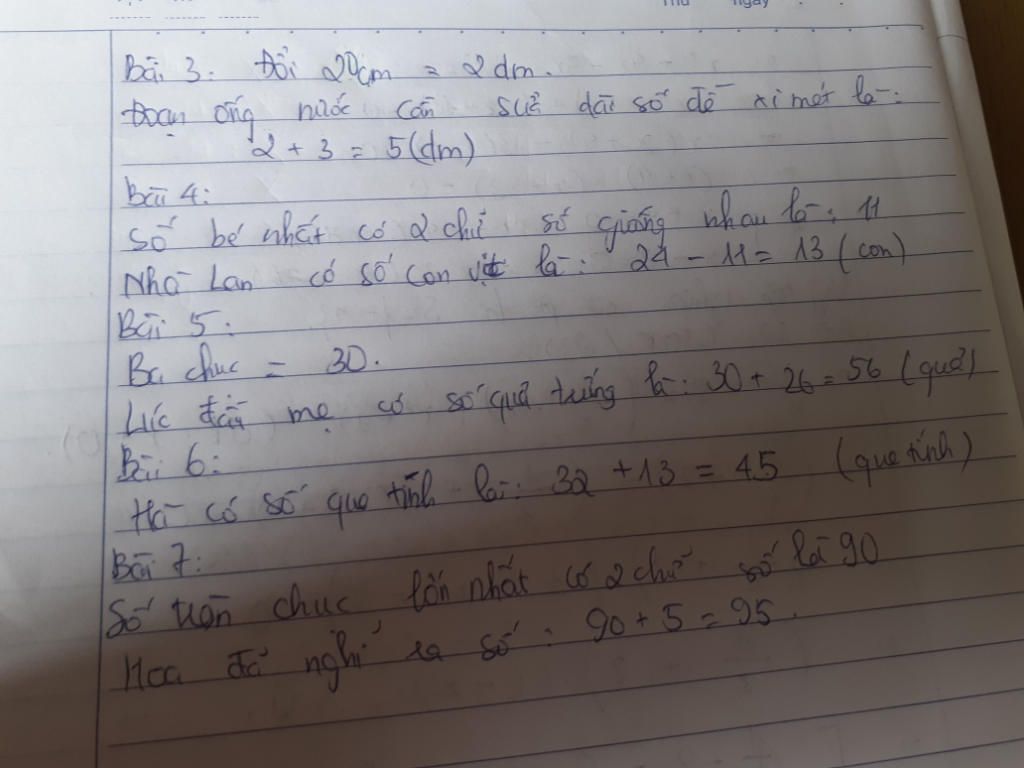 Thứ ngày
Bài 3: Đổi 20cm = 2dm.
Đoạn ống nước còn dài số đề xi mét là:
2 + 3 = 5(dm)
Bài 4:
Số bé nhất có 2 chữ số giống nhau là: 11
Nhà Lan có số con vịt là: 24 - 11 = 13 (con)
Bài 5:
Ba chục = 30.
Lúc đầu mẹ có số quả trứng là: 30 + 26 = 56 (quả)
Bài 6:
Hà có số que tính là: 32 + 13 = 45 (que tính)
Bài 7:
Số tròn chục lớn nhất có 2 chữ số là 90
Hoa đã nghĩ ra số: 90 + 5 = 95.